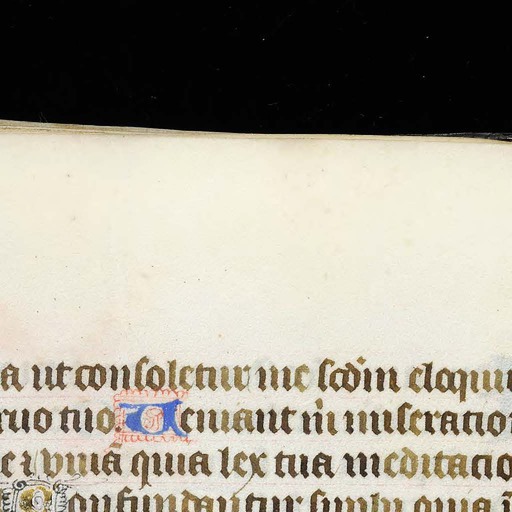 a ut consoletur me scd̄m eloquiu
ruo tuo Veniant m̄ miseratio
e ⁊ viua quia lex tua meditacio
Confundantur supbi quia